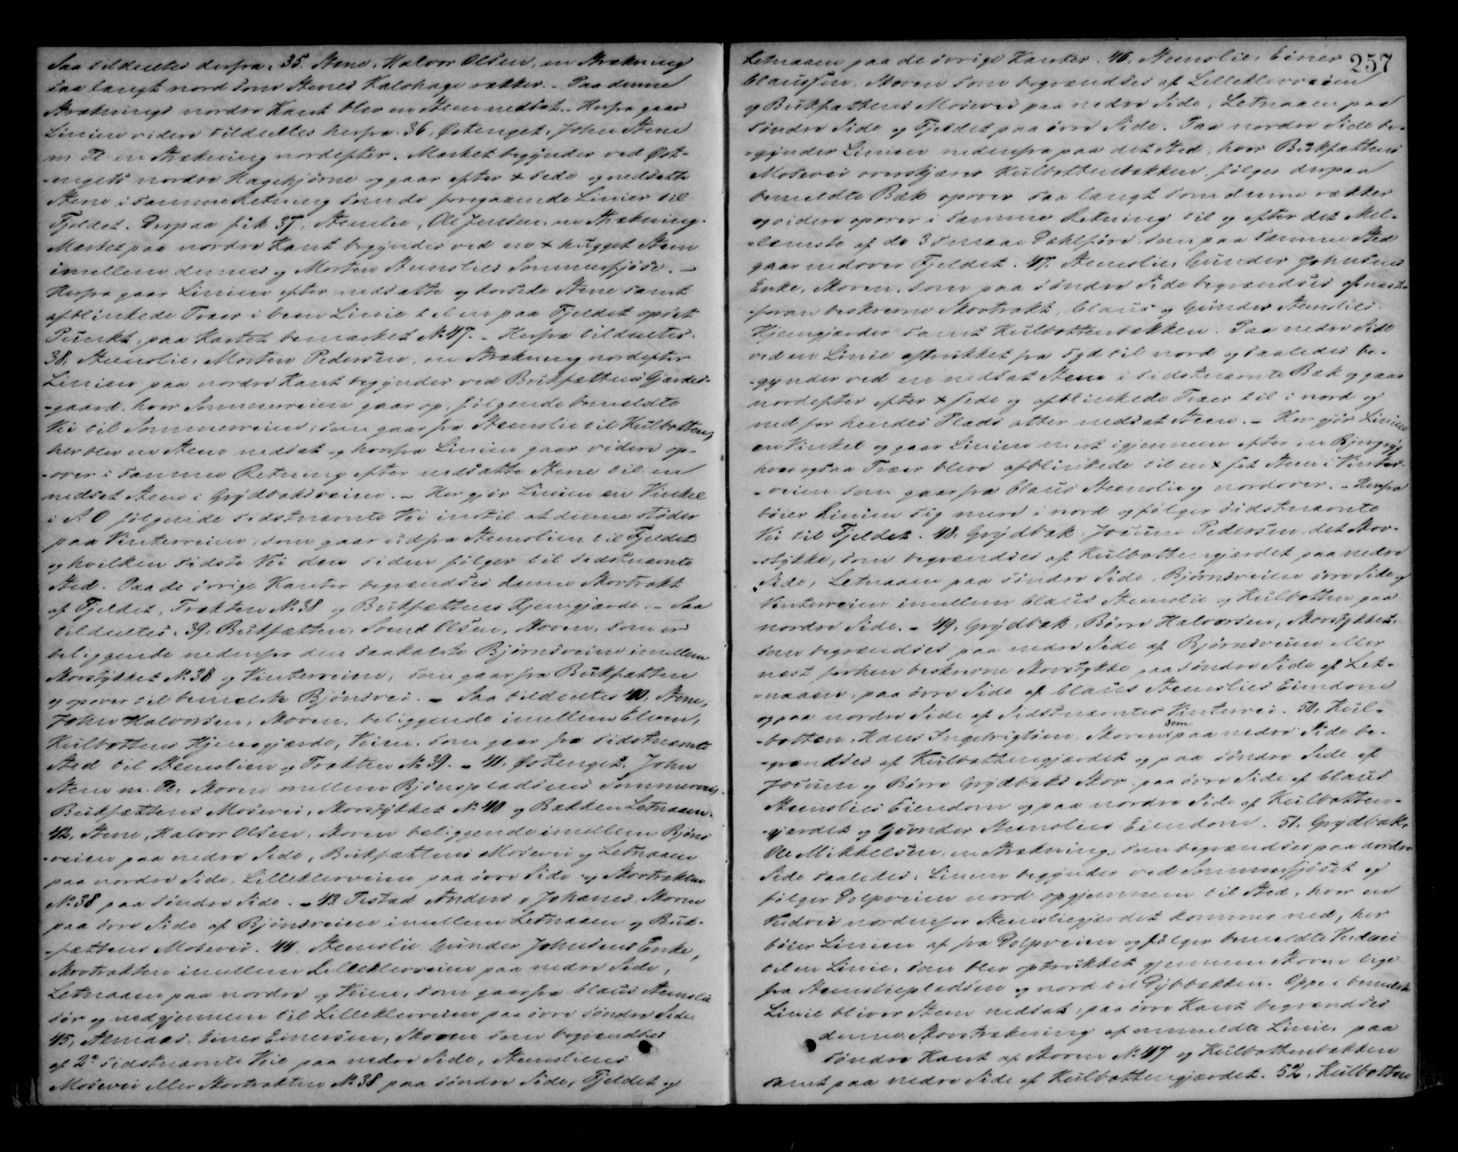 Saa tildeeltes derfra: 35. Stene, Halvor Olsen, en Strækning
saa langt nord som Stenes Kalvhage rækker. - Paa denne
Stræknings nordre Kant blev en Steen nedsat. - Herfra gaar
Linien videre tildeeltes herfra: 36, Østenget, John Stene
m Fl en Strækning nordefter. Mærket begynder ved Øst-
-engets nordre Hagehjørne og gaar efter + sede og nedsatte
Stene i samme Retning som de foregaaende Linier til
Fjeldet. Derpaa fik 37, Stenslie, Ole Jensen, en Strækning.
Mærket paa nordre Kant begynder ved en + hugget Steen
imellem dennes og Morten Stenslies Sommerfjøse. -
Herfra gaar Linien efter nedsatte og korsede Stene samt
afblinkede Træer i been Linie til en paa Fjeldet opsat
Punkt, paa Kartet bemærket No 47. - Herfra tildeeltes
38, Stenslie, Morten Pedersen, en Strækning nordefter
Linien paa nordre Kant begynder ved Bukfættens Gjærdes-
-gaard, hvor Sommerveien gaar op, følgende bemeldte
Vei til Sommerveien, som gaar fra Stenslien til Kulbotten,
her blev en Steen nedsat og herfra Linien gaar videre op-
-over i samme Retning efter nedsatte Stene til en
nedsat Steen i Grydbaksveien. - Her gjør Linien en Vinkel
i N.O følgende sidstnævnte Vei indtil at denne støder
paa Vinterveien, som gaar ud fra Stenslien til Fjeldet
og hvilken sidste Vei den siden følger til sidstnævnte
Sted. Paa de øvrige Kanter begrændses denne Skovtrakt
af Fjeldet, Trakten No 38 og Bukfættens Hjemgjærde. - Saa
tildeeltes: 39, Bukfætten, Svend Olsen, Skoven, som er
beliggende nedenfra den saakaldte Bjørnsveien imellem
Skovstykket No 38 og Vinterveien, som gaar fra Bukfætten
og opover til bemeldte Bjørnsvei. - Saa tildeeltes 40, Stene,
John Halvorsen, Skoven, beliggende imellem Elven,
Kulbottens Hjemgjærde, Veien, som gaar fra sidstnævnte
Sted til Stenslien og Trakten No 39. - 41. Østenget, John
Stene m. Fl. Skoven mellem Bjørnspladsens Sommervei,
Bukfættens Mosevei, Skovstykket No 40 og Bækken Letnaaen.
42, Stene, Halvor Olsen, Skoven beliggende imellem Bjørns-
-veien paa nedre Side, Bukfættens Mosevei og Letnaaen
paa nordre Side, Lillekleveien paa øvre Side og Skovtrakten
No 38 paa søndre Side. - 43 Testad Anders og Johanes, Skoven
paa øvre Side af Bjørnsveien imellem Letnaaen og Buk-
-fættens Mosevei. 44. Stenslie Gunder Johnsens Enke,
Skovtrakten imellem Lillekleveien paa nedre Side,
Letnaaen paa nordre og Veien, som gaar fra Claus Stenslie
sør og nedgjennem til Lillekleveien paa øvre søndre Side.
45, Almaas, Einer Einersen, Skoven som begrændses
af 2de sidstnævnte Veie paa nedre Side, Stensliens
Mosevei eller Skovtrakten No 38 paa søndre Side, Fjeldet og
257
Letnaaen paa de øvrige Kanter. 46, Stenslie, Einer
Claussen, Skoven som begrændses af Lillekleveien
og Bukfættens Mosevei paa nedre Side, Letnaaen paa
søndre Side og Fjeldet paa øvre Side. Paa nordre Side be-
-gynder Linien nedenfra paa det Sted, hvor Bukfættens
Mosevei overskjærer Kulbottenbækken, følger derpaa
bemeldte Bæk opover saa langt som denne rækker
og videre opover i samme Retning til og efter det Mel-
-lemste af de 3 smaae Dahlføre, som paa samme Sted
gaar nedover Fjeldet. 47. Stenslie, Gunder Johnsens
Enke, Skoven, som paa søndre Side begrændses af næst-
-foran beskrevne Skovtrakt, Claus og Gunder Stenslies
Hjemgjærder samt Kulbottenbækken. Paa nedre Side
ved en Linie optrukket fra syd til nord og saaledes be-
-gynder ved en nedsat Steen i sidstnævnte Bæk og gaar
nordefter efter + sede og afblinkede Træer til i nord og
ned for hendes Plads atter nedsat Steen. - Her gjør Linien
en Vinkel og gaar Linien mest igjennem efter en Bjergryg
hvor ogsaa Træer bleve afblinkede til en + set Steen i Vinter-
-veien som gaar fra Claus Stenslie og nordover. - Herfra
bøier Linien sig mere i nord og følger sidstnævnte
Vei til Fjeldet. 48, Grydbak, Joeven Pedersen det Skov-
-stykke, som begrændses af Kulbottengjærdet paa nedre
Side, Letnaaen paa søndre Side, Bjørnsveien øvre Side og
Vinterveien imellem Claus Stenslie og Kulbotten paa
nordre Side. - 49, Grydbak, Børre Halvorsen, Skovstykket
som begrændses paa nedre Side af Bjørnsveien eller
næst forhen beskrevne Skovstykke paa søndre Side af Let-
-naaen, paa øvre Side af Claus Stenslies Eiendom
og paa nordre Side af Sidstnævntes Vintervei. 50, Kul-
-botten, Hans Ingebrigtsen, Skoven som paa nedre Side be-
-grændses af Kulbottengjærdet og paa søndre Side af
Joeven og Børre Grydbaks Skov, paa øvre Side af Claus
Stenslies Eiendom og paa nordre Side af Kulbotten-
-gjærdet og Gunder Stenslies Eiendom. 51, Grydbak,
Ole Mikkelsen, en Strækning, som begrændses paa nordre
Side saaledes: Linien begynder ved Sommerfjøset og
følger Dolpveien nord opgjennem til Sted, hvor en
Vedvei nordenfor Stensliegjærdet kommer ned, her
bøier Linien af fra Dolpveien og følger bemeldte Vedvei
til en Linie, som blev optrukket gjennem Skoven lige
fra Stenslipladsen og nord til Dybbækken. Oppe i bemeldte
Linie bliver Steen nedsat, paa øvre Kant begrændses
denne Skovstrækning af ommeldte Linie, paa
søndre Kant af Skoven No 47 og Kulbottenbækken
samt paa nedre Side af Kulbottengjærdet. 52, Kulbotten